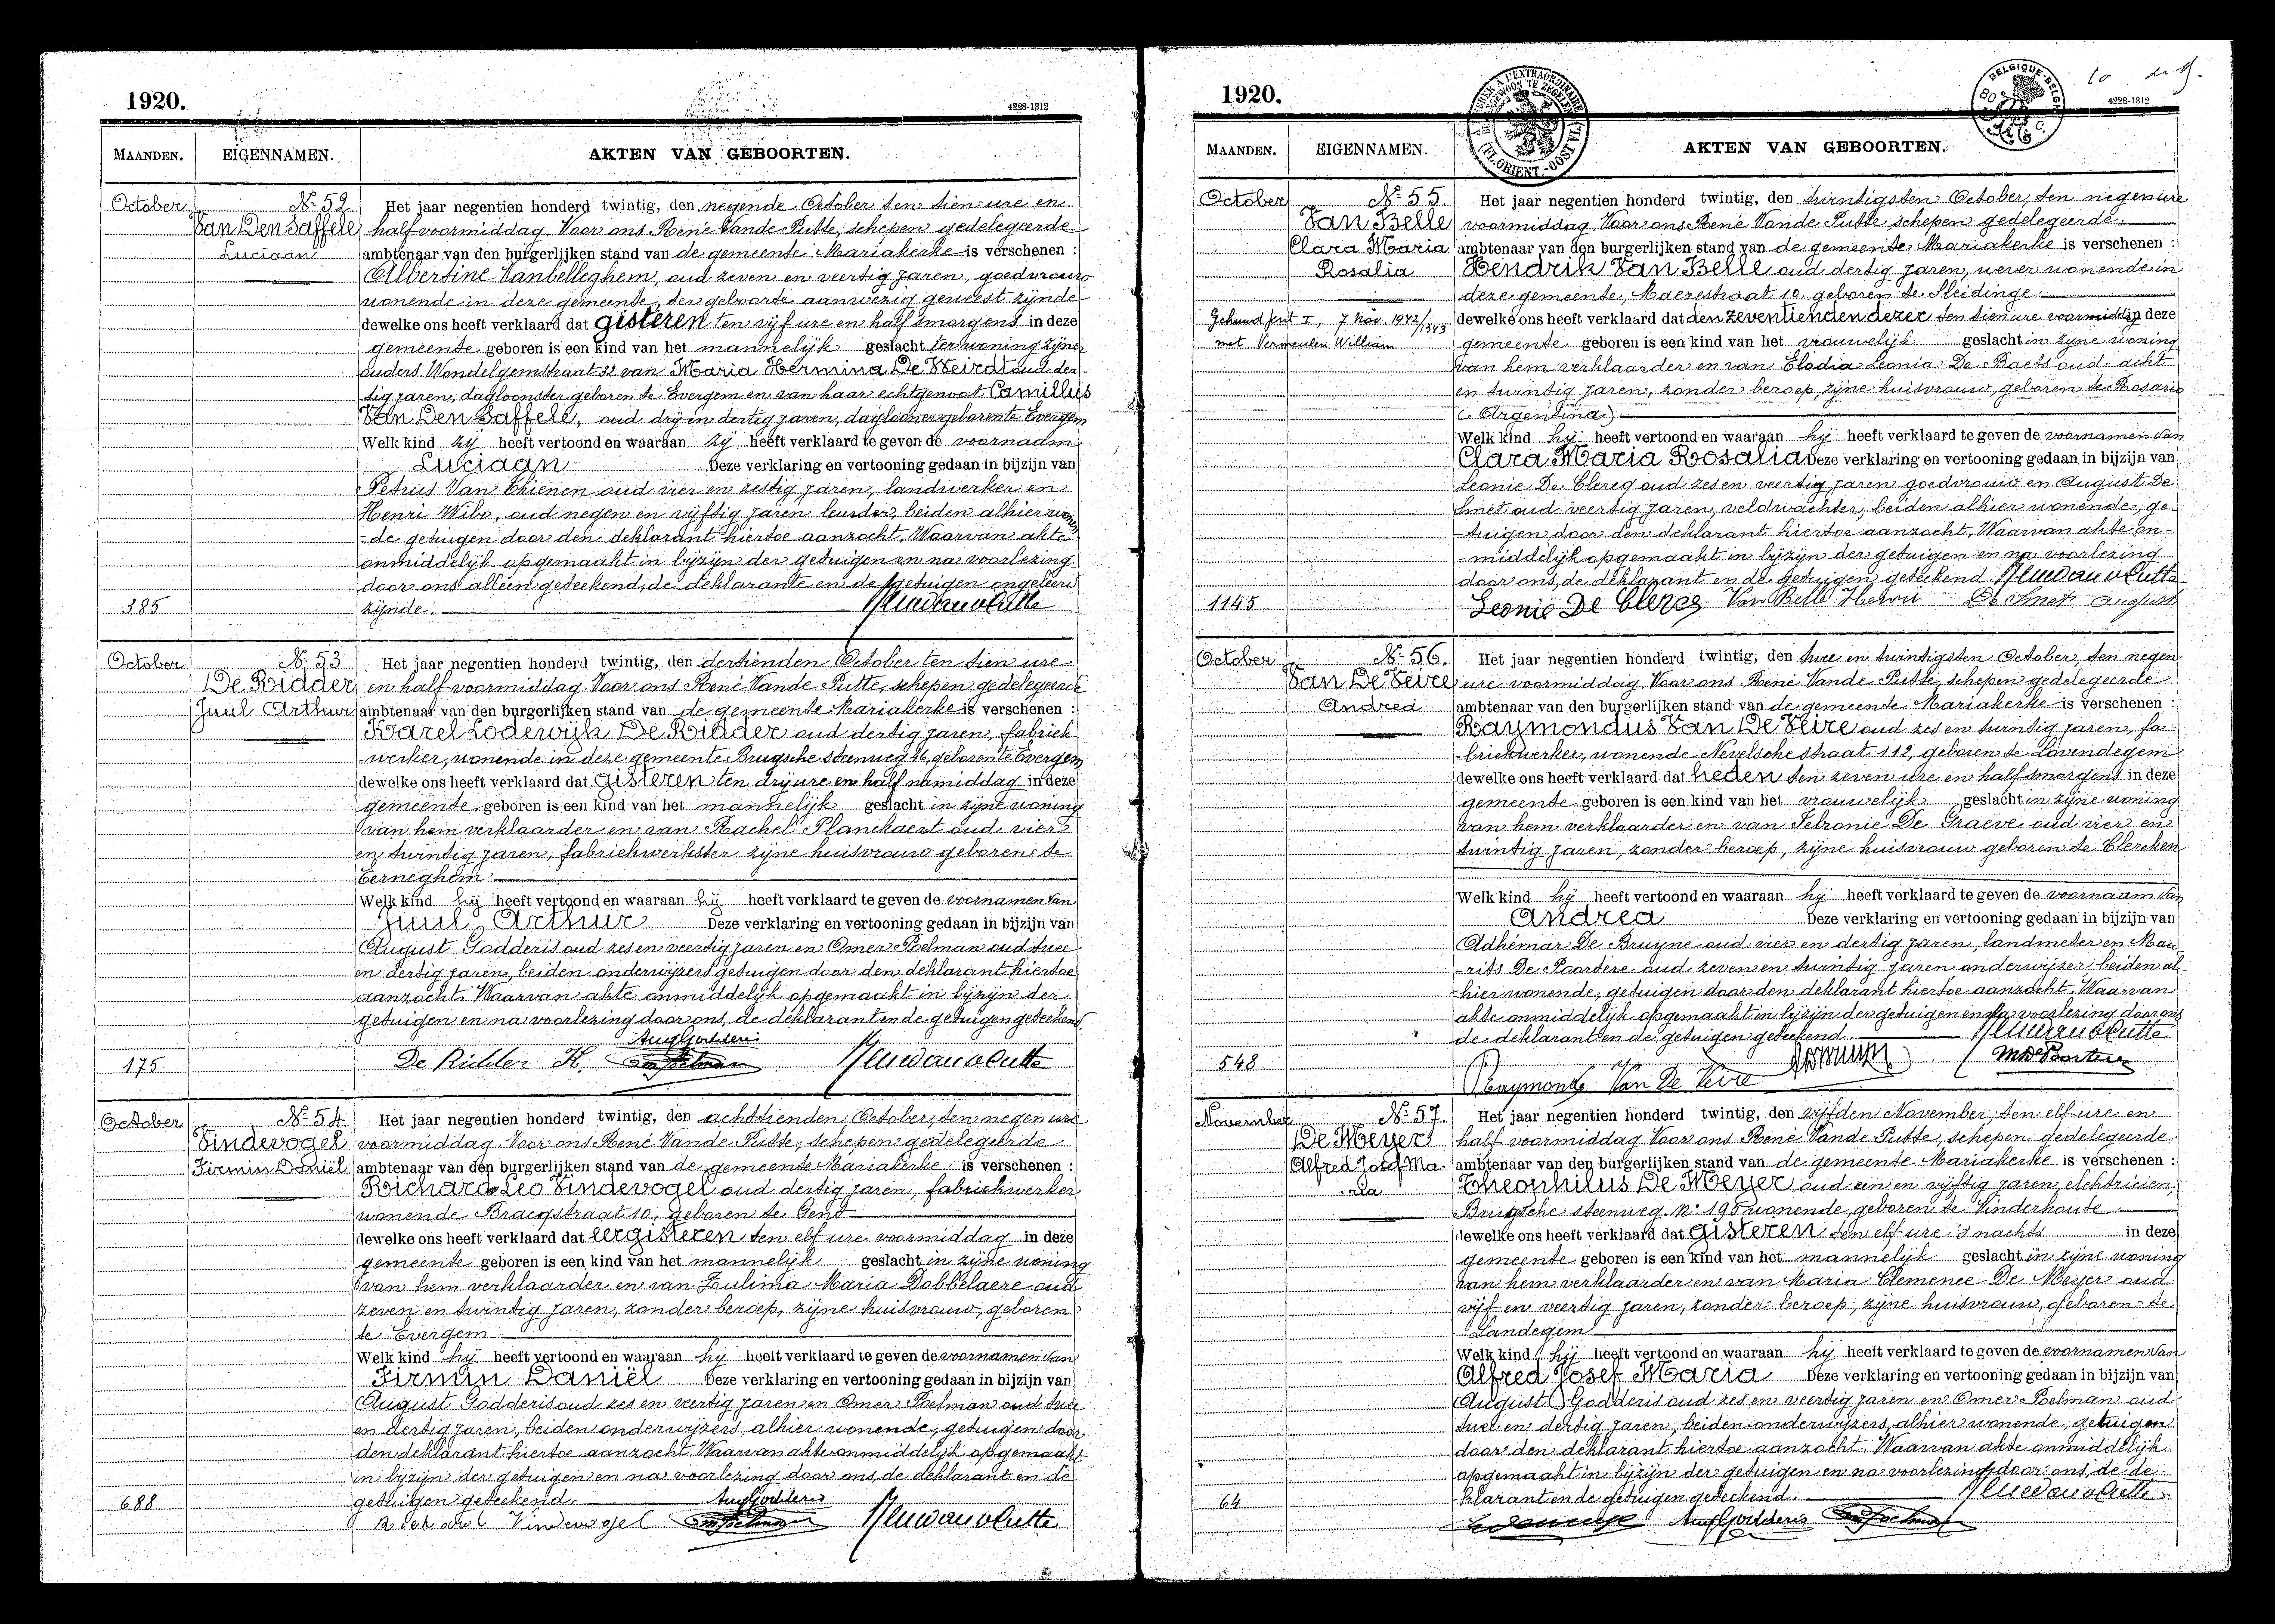 1920.
4228-1312
MAANDEN.
EIGENNAMEN.
AKTEN VAN GEBOORTEN.
October
Nr 52
Van Den Saffele
Luciaan
385
Het jaar negentien honderd twintig, den negende October ten tien ure en
half voormiddag. Voor ons René Vande Putte, schepen gedelegeerde
ambtenaar van den burgerlijken stand van de gemeente Mariakerke is verschenen :
Albertine Vanbelleghem, oud zeven en veertig jaren, goedvrouw
wonende in deze gemeente, ter geboorte aanwezig geweest zijnde
dewelke ons heeft verklaard dat gisteren ten vijf ure en half smorgens in deze
gemeente geboren is een kind van het mannelijk geslacht ter woning zijner
ouders Wondelgemstraat 32 van Maria Hermina De Weirdt oud der-
tig jaren, dagloonster geboren te Evergem en van haar echtgenoot Camillus
Van Den Saffele, oud drij en dertig jaren, daglooner geboren te Evergem
Welk kind zij heeft vertoond en waaraan zij heeft verklaard te geven de voornaam
Luciaan Deze verklaring en vertooning gedaan in bijzijn van
Petrus Van Thienen oud vier en zestig jaren, landwerker en
Henri Wibo, oud negen en vijftig jaren leurder, beiden alhier wonen
-de getuigen door den deklarant hiertoe aanzocht. Waarvan akte
onmiddelijk opgemaakt in bijzijn der getuigen en na voorlezing
door ons alleen geteekend, de deklarante en de getuigen ongeleerd
zijnde.
October
Nr 53
De Ridder
Juul Arthur
175
Het jaar negentien honderd twintig, den dertienden October ten tien ure
en half voormiddag. Voor ons René Vande Putte, schepen gedelegeerde
ambtenaar van den burgerlijken stand van de gemeente Mariakerke is verschenen :
Karel Lodewijk De Ridder oud dertig jaren, fabriek
-werker, wonende in deze gemeente Brugsche steenweg 16, geboren te Evergem
dewelke ons heeft verklaard dat gisteren ten drij ure en half namiddag in deze
gemeente geboren is een kind van het mannelijk geslacht in zijne woning
van hem verklaarder en van Rachel Planckaert oud vier
en twintig jaren, fabriekwerkster zijne huisvrouw geboren te
Eerneghem
Welk kind hij heeft vertoond en waaraan hij heeft verklaard te geven de voornamen van
Juul Arthur Deze verklaring en vertooning gedaan in bijzijn van
August Godderis oud zes en veertig jaren en Omer Poelman oud twee
en dertig jaren, beiden onderwijzers getuigen door den deklarant hiertoe
aanzocht. Waarvan akte onmiddelijk opgemaakt in bijzijn der
getuigen en na voorlezing door ons, de deklarant en de getuigen geteekend
Aug Godderis
De Ridder K.
October
Nr 54
Vindevogel
Firmin Daniël
688
Het jaar negentien honderd twintig, den achttienden October, ten negen ure
voormiddag. Voor ons René Vande Putte, schepen gedelegeerde
ambtenaar van den burgerlijken stand van de gemeente Mariakerke is verschenen :
Richard Leo Vindevogel oud dertig jaren, fabriekwerker
wonende Bracqstraat 10, geboren te Gent
dewelke ons heeft verklaard dat eergisteren ten elf ure voormiddag in deze
gemeente geboren is een kind van het mannelijk geslacht in zijne woning
van hem verklaarder en van Zulima Maria Dobbelaere oud
zeven en twintig jaren, zonder beroep, zijne huisvrouw, geboren
te Evergem
Welk kind hij heeft vertoond en waaraan hij heeft verklaard te geven de voornamen van
Firmin Daniël Deze verklaring en vertooning gedaan in bijzijn van
August Godderis oud zes en veertig jaren en Omer Poelman oud twee
en dertig jaren, beiden onderwijzers, alhier wonende, getuigen door
den deklarant hiertoe aanzocht. Waarvan akte onmiddelijk opgemaakt
in bijzijn der getuigen en na voorlezing door ons, de deklarant en de
getuigen geteekend. Aug Godderis
Richard Vindevogel
1920.
BELGIQUE-BELGIE
4228-1312
MAANDEN.
EIGENNAMEN.
AKTEN VAN GEBOORTEN.
October
Nr 55.
Van Belle
Clara Maria
Rosalia
7 Nov. 1942/1343
met Vermeulen William
1145
Het jaar negentien honderd twintig, den twintigsten October, ten negen ure
voormiddag. Voor ons René Vande Putte, schepen gedelegeerde
ambtenaar van den burgerlijken stand van de gemeente Mariakerke is verschenen :
Hendrik Van Belle oud dertig jaren, wever wonende in
deze gemeente, Maerestraat 10. geboren te Sleidinge
dewelke ons heeft verklaard dat den zeventienden dezer ten tien ure voormiddag in deze
gemeente geboren is een kind van het vrouwelijk geslacht in zijne woning
van hem verklaarder en van Elodia Leonia De Baets oud acht
en twintig jaren, zonder beroep, zijne huisvrouw, geboren te Rosario
(Argentina)
Welk kind hij heeft vertoond en waaraan hij heeft verklaard te geven de voornamen van
Clara Maria Rosalia Deze verklaring en vertooning gedaan in bijzijn van
Leonie De Clercq oud zes en veertig jaren goedvrouw en August De
Smet oud veertig jaren, veldwachter, beiden alhier wonende, ge-
tuigen door den deklarant hiertoe aanzocht. Waarvan akte on-
-middelijk opgemaakt in bijzijn der getuigen en na voorlezing
door ons, de deklarant en de getuigen geteekend.
Leonie De Clercq Van Belle Henri De Smet August
October
Nr 56.
Van De Veire
Andrea
548
Het jaar negentien honderd twintig, den twee en twintigsten October, ten negen
ure voormiddag. Voor ons René Vande Putte, schepen gedelegeerde
ambtenaar van den burgerlijken stand van de gemeente Mariakerke is verschenen :
Raymondus Van De Veire oud zes en twintig jaren, fa-
briekwerker, wonende Nevelsche straat 112, geboren te Lovendegem
dewelke ons heeft verklaard dat heden ten zeven ure en half smorgens in deze
gemeente geboren is een kind van het vrouwelijk geslacht in zijne woning
van hem verklaarder en van Petronie De Graeve oud vier en
twintig jaren, zonder beroep, zijne huisvrouw geboren te Clercken
Welk kind hij heeft vertoond en waaraan hij heeft verklaard te geven de voornaam van
Andrea Deze verklaring en vertooning gedaan in bijzijn van
Adhémar De Bruyne oud vier en dertig jaren, landmeter en Mau-
-rits De Poortere oud zeven en twintig jaren onderwijzer, beiden al-
-hier wonende, getuigen door den deklarant hiertoe aanzocht. Waarvan
akte onmiddelijk opgemaakt in bijzijn der getuigen en na voorlezing door ons
de deklarant en de getuigen geteekend
Raymond Van De Veire
November
Nr 57.
De Meyer
Alfred Josef Ma-
-ria
64
Het jaar negentien honderd twintig, den vijfden November, ten elf ure en
half voormiddag. Voor ons René Vande Putte, schepen gedelegeerde
ambtenaar van den burgerlijken stand van de gemeente Mariakerke is verschenen :
Theophilus De Meyer oud een en vijftig jaren, elektricien,
Brugsche steenweg Nr 195 wonende, geboren te Vinderhoute
dewelke ons heeft verklaard dat gisteren ten elf ure 's nachts in deze
gemeente geboren is een kind van het mannelijk geslacht in zijne woning
van hem verklaarder en van Maria Clemence De Meyer oud
vijf en veertig jaren, zonder beroep, zijne huisvrouw, geboren te
Landegem
Welk kind hij heeft vertoond en waaraan hij heeft verklaard te geven de voornamen van
Alfred Josef Maria Deze verklaring en vertooning gedaan in bijzijn van
August Godderis oud zes en veertig jaren en Omer Poelman oud
twee en dertig jaren, beiden onderwijzers, alhier wonende, getuigen
door den deklarant hiertoe aanzocht. Waarvan akte onmiddelijk
opgemaakt in bijzijn der getuigen en na voorlezing door ons, de de-
klarant en de getuigen geteekend.
Aug Godderis